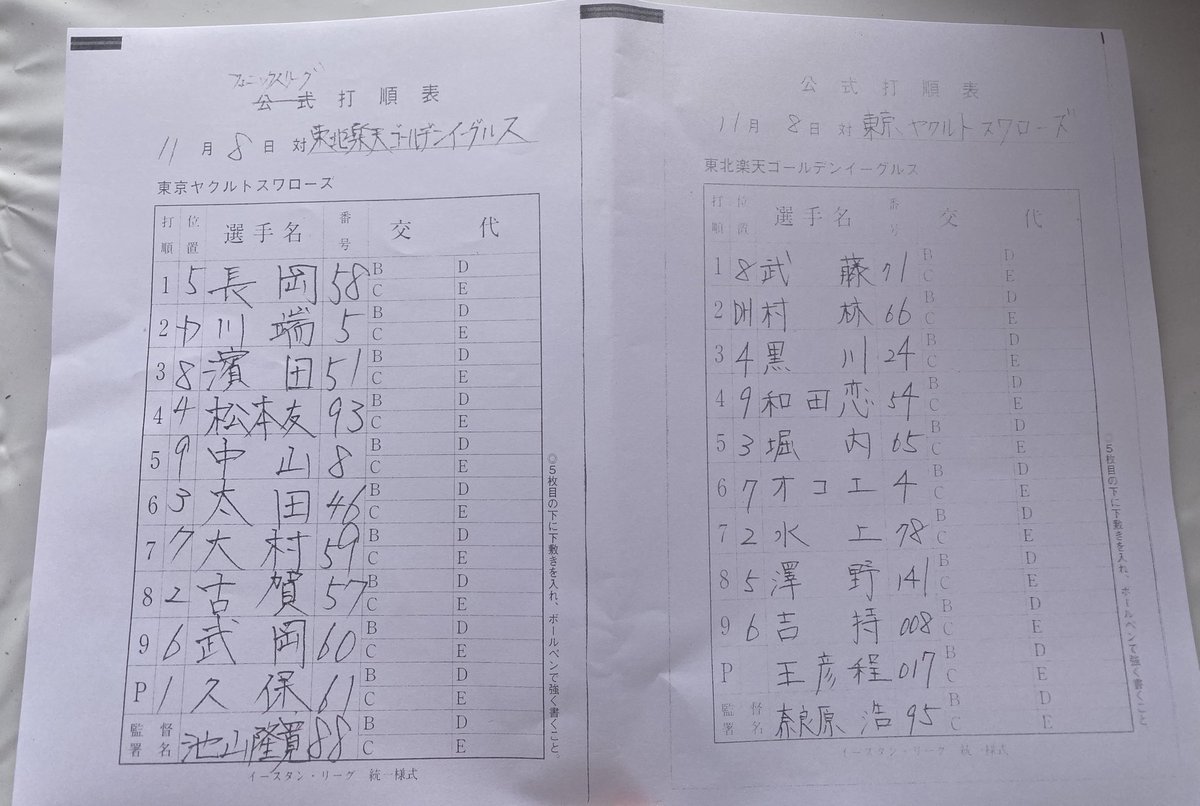 フェニックスリーグ
公式打順表
11月8日対東北楽天ゴールデンイーグルス
東京ヤクルトスワローズ
打順 位置 選手名 番号 交代
1 5 長岡 58 B C D E
2 D 川端 5 B C D E
3 8 濱田 51 B C D E
4 4 松本友 93 B C D E
5 9 中山 8 B C D E
6 3 太田 46 B C D E
7 7 大村 59 B C D E
8 2 古賀 57 B C D E
9 6 武岡 60 B C D E
P 1 久保 61 B C D E
監督署名 池山隆寛 88 B C D E
イースタン・リーグ 統一様式
◎5枚目の下に下敷きを入れ、ボールペンで強く書くこと。
公式打順表
11月8日対東京ヤクルトスワローズ
東北楽天ゴールデンイーグルス
打順 位置 選手名 番号 交代
1 8 武藤 71 B C D E
2 DH 村林 66 B C D E
3 4 黒川 24 B C D E
4 9 和田恋 54 B C D E
5 3 堀内 65 B C D E
6 7 オコエ 4 B C D E
7 2 水上 78 B C D E
8 5 澤野 141 B C D E
9 6 吉持 008 B C D E
P 王彦程 017 B C D E
監督署名 奈良原浩 95 B C D E
イースタン・リーグ 統一様式
◎5枚目の下に下敷きを入れ、ボールペンで強く書くこと。